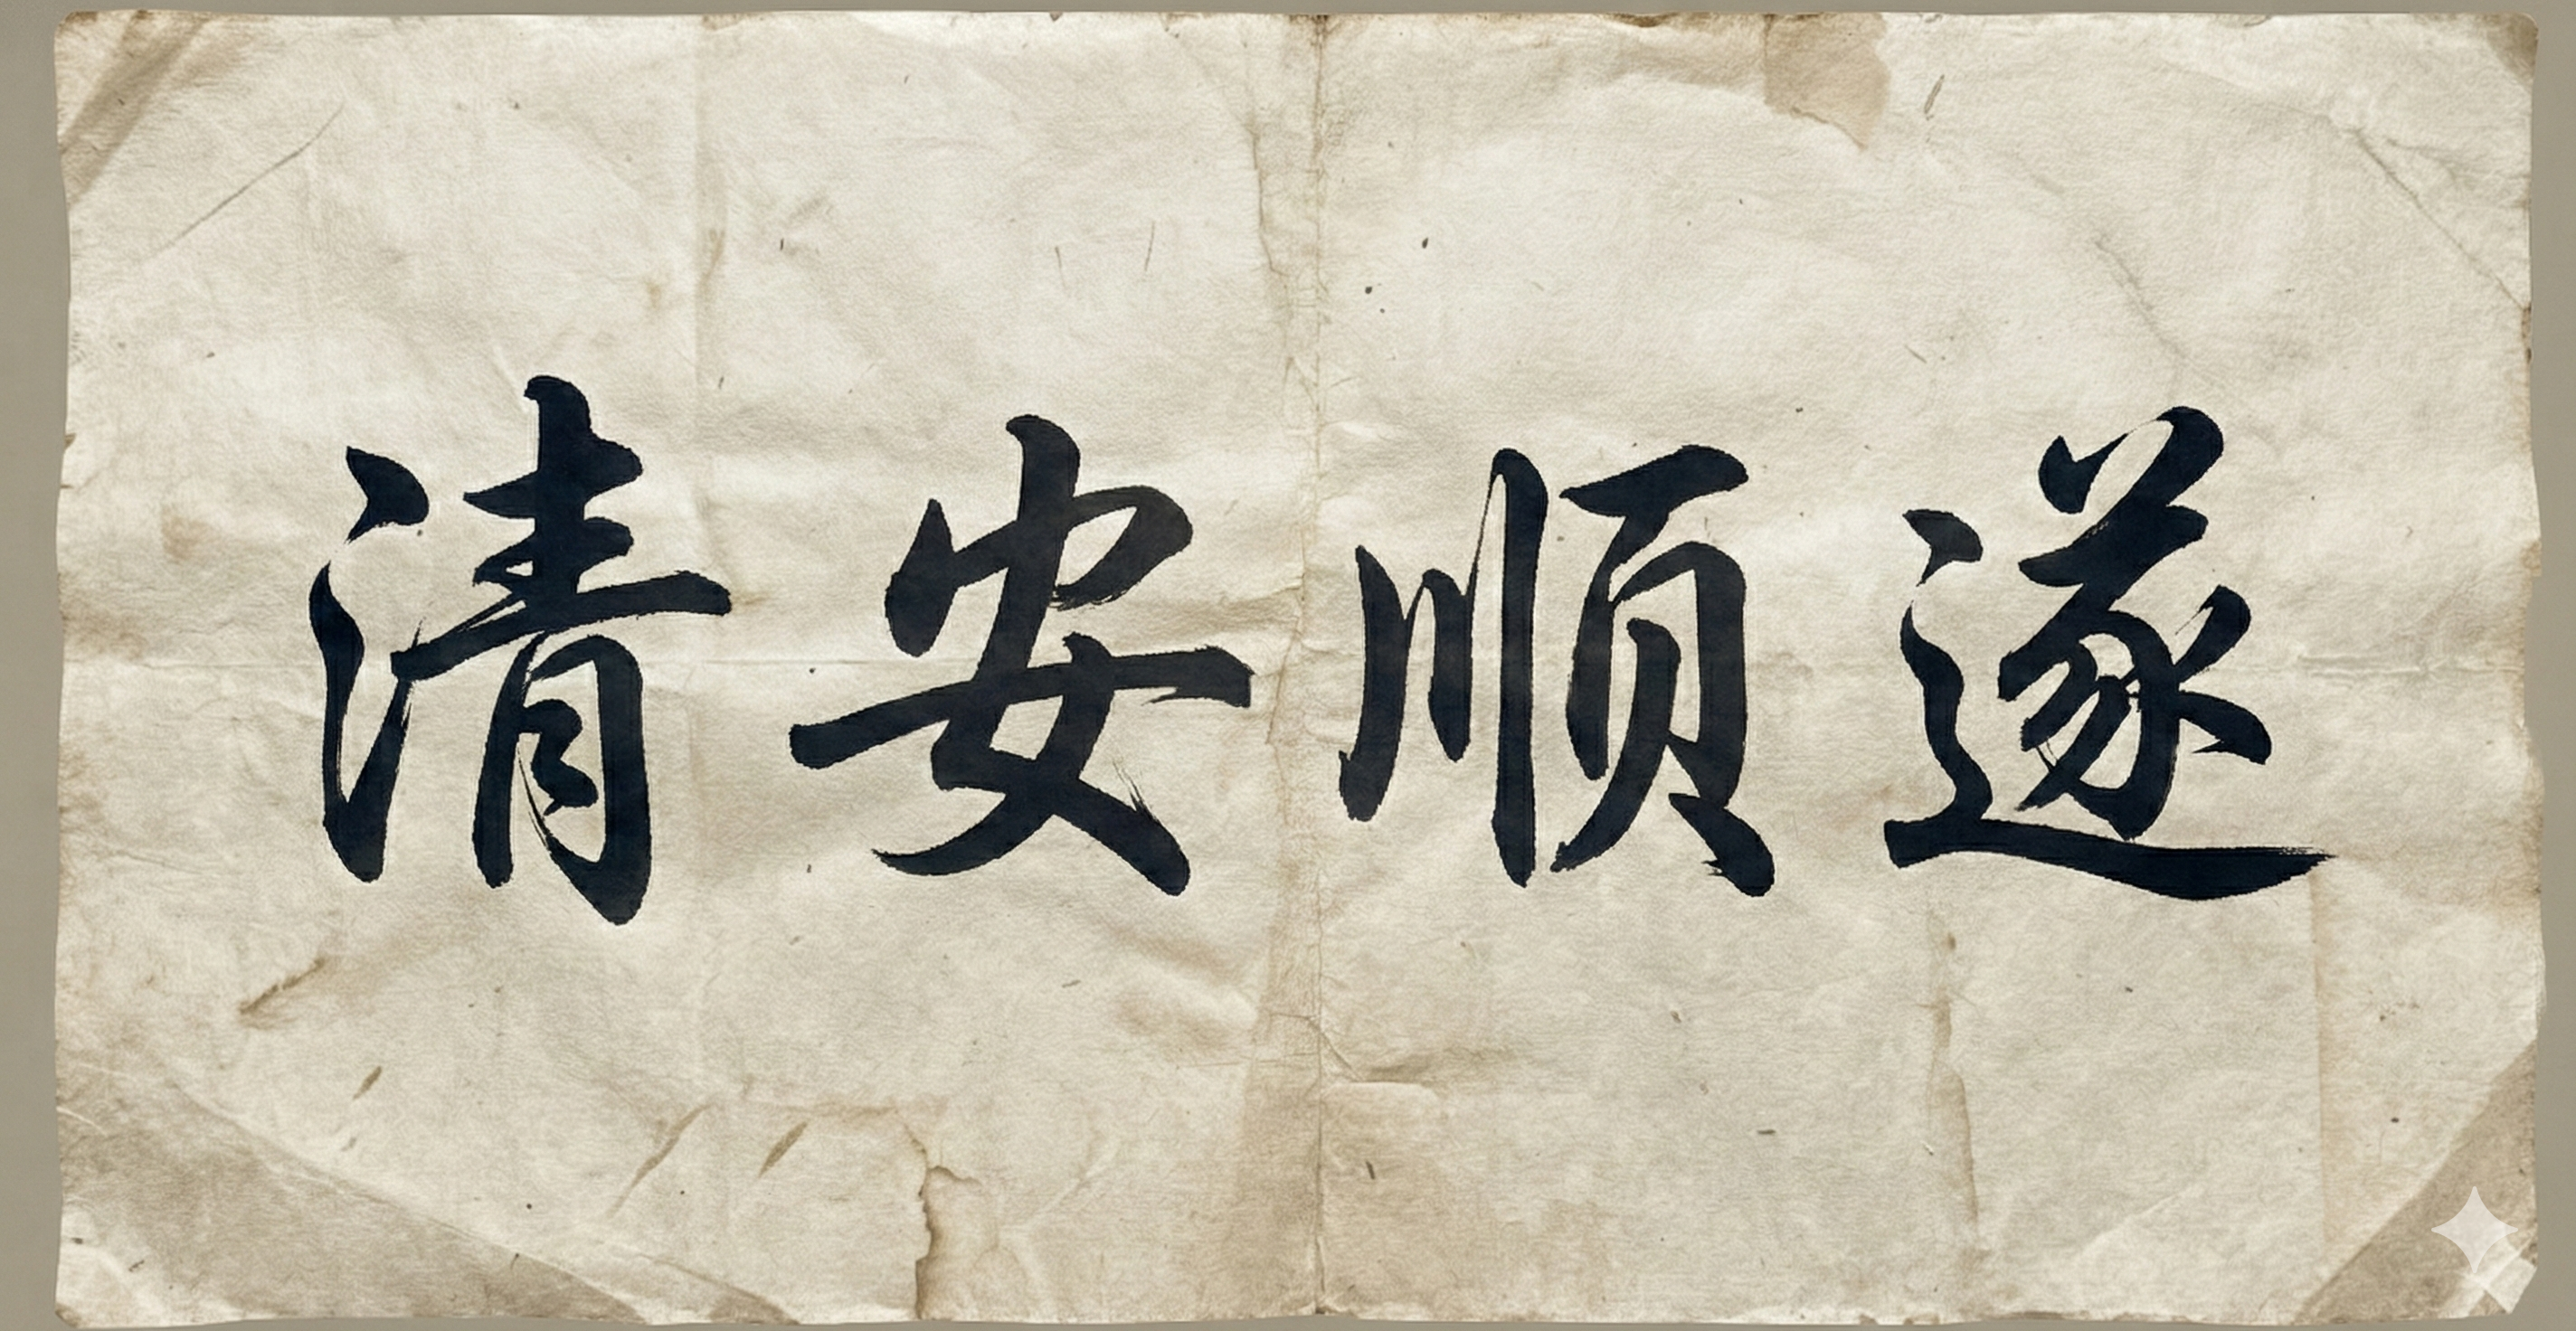 清安顺遂